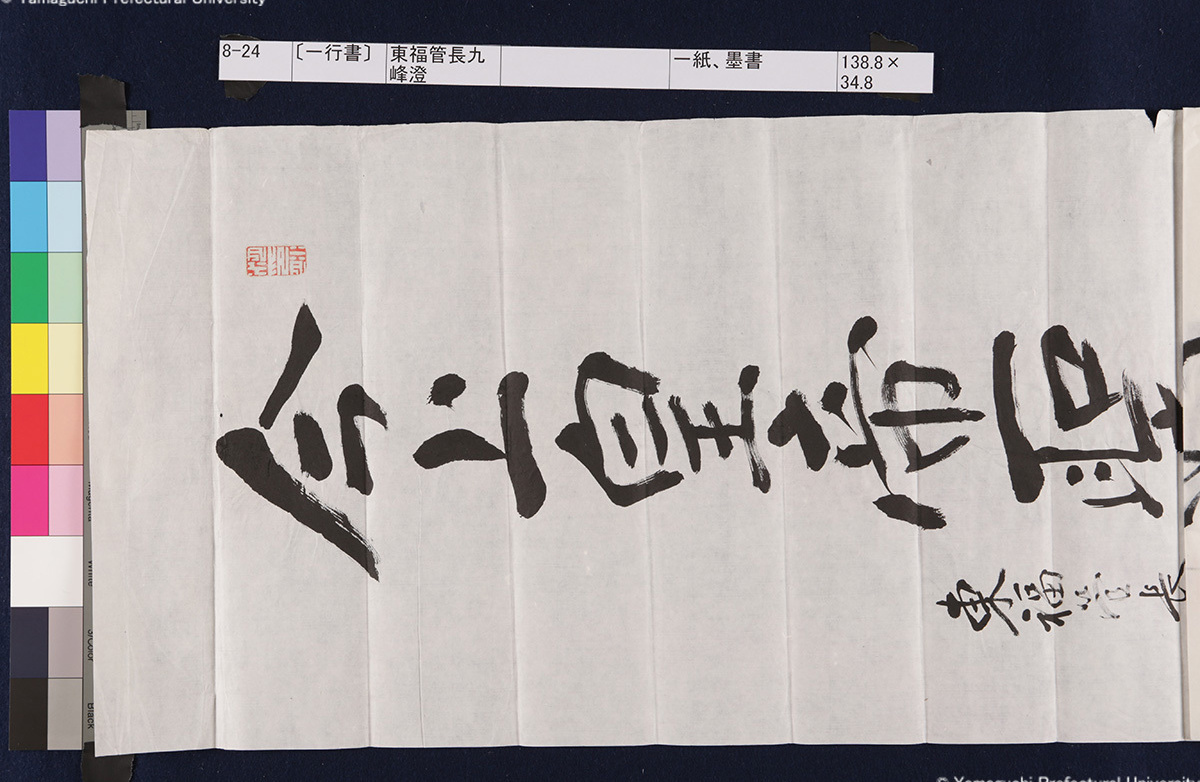 © Yamaguchi Prefectural University
8-24
〔一行書〕
東福管長九
峰澄
一紙、墨書
138.8×
34.8
今上皇帝聖
東福管長
White
3/Color
Black
© Yamaguchi Prefectural University